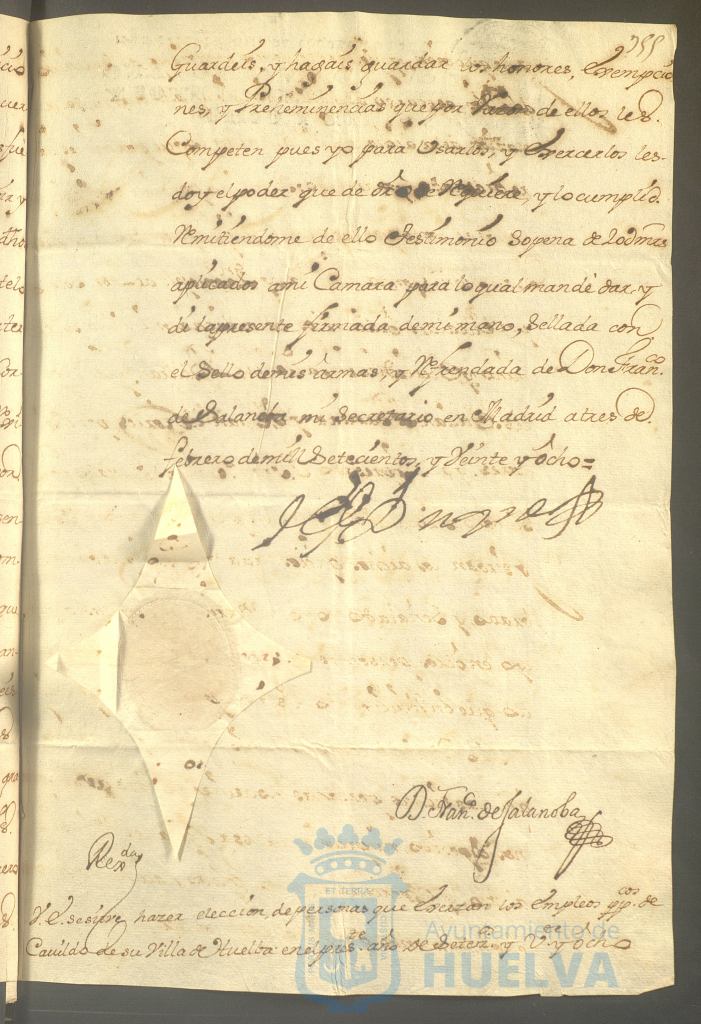 355
Guardeis, y hagais guardar los honores, exempcio
nes, y Preheminencias que por razon de ellos les
Competen pues yo para Usarlos, y Exercerlos les
doy el poder que de dro se Requiere, y lo cumplid
Remitiendome de ello Testimonio Sopena de 20d mrs
aplicados a mi Camara para lo qual mandè dar y
di la presente firmada de mi mano, Sellada con
el Sello de mis armas, y Refrendada de Don Franco
de Salanoba mi Secretario en Madrid a tres de
febrero de mill Setecientos, y Veinte y Ocho=
D. Franco de Salanoba
Rexda
V. E. se sirve hazer elección de personas que Exerzan los Empleos ppcos de
Cavildo de su Villa de Huelba en el preste año de Seteztos y Vte y ocho
ET TERRAE
Ayuntamiento de
HUELVA